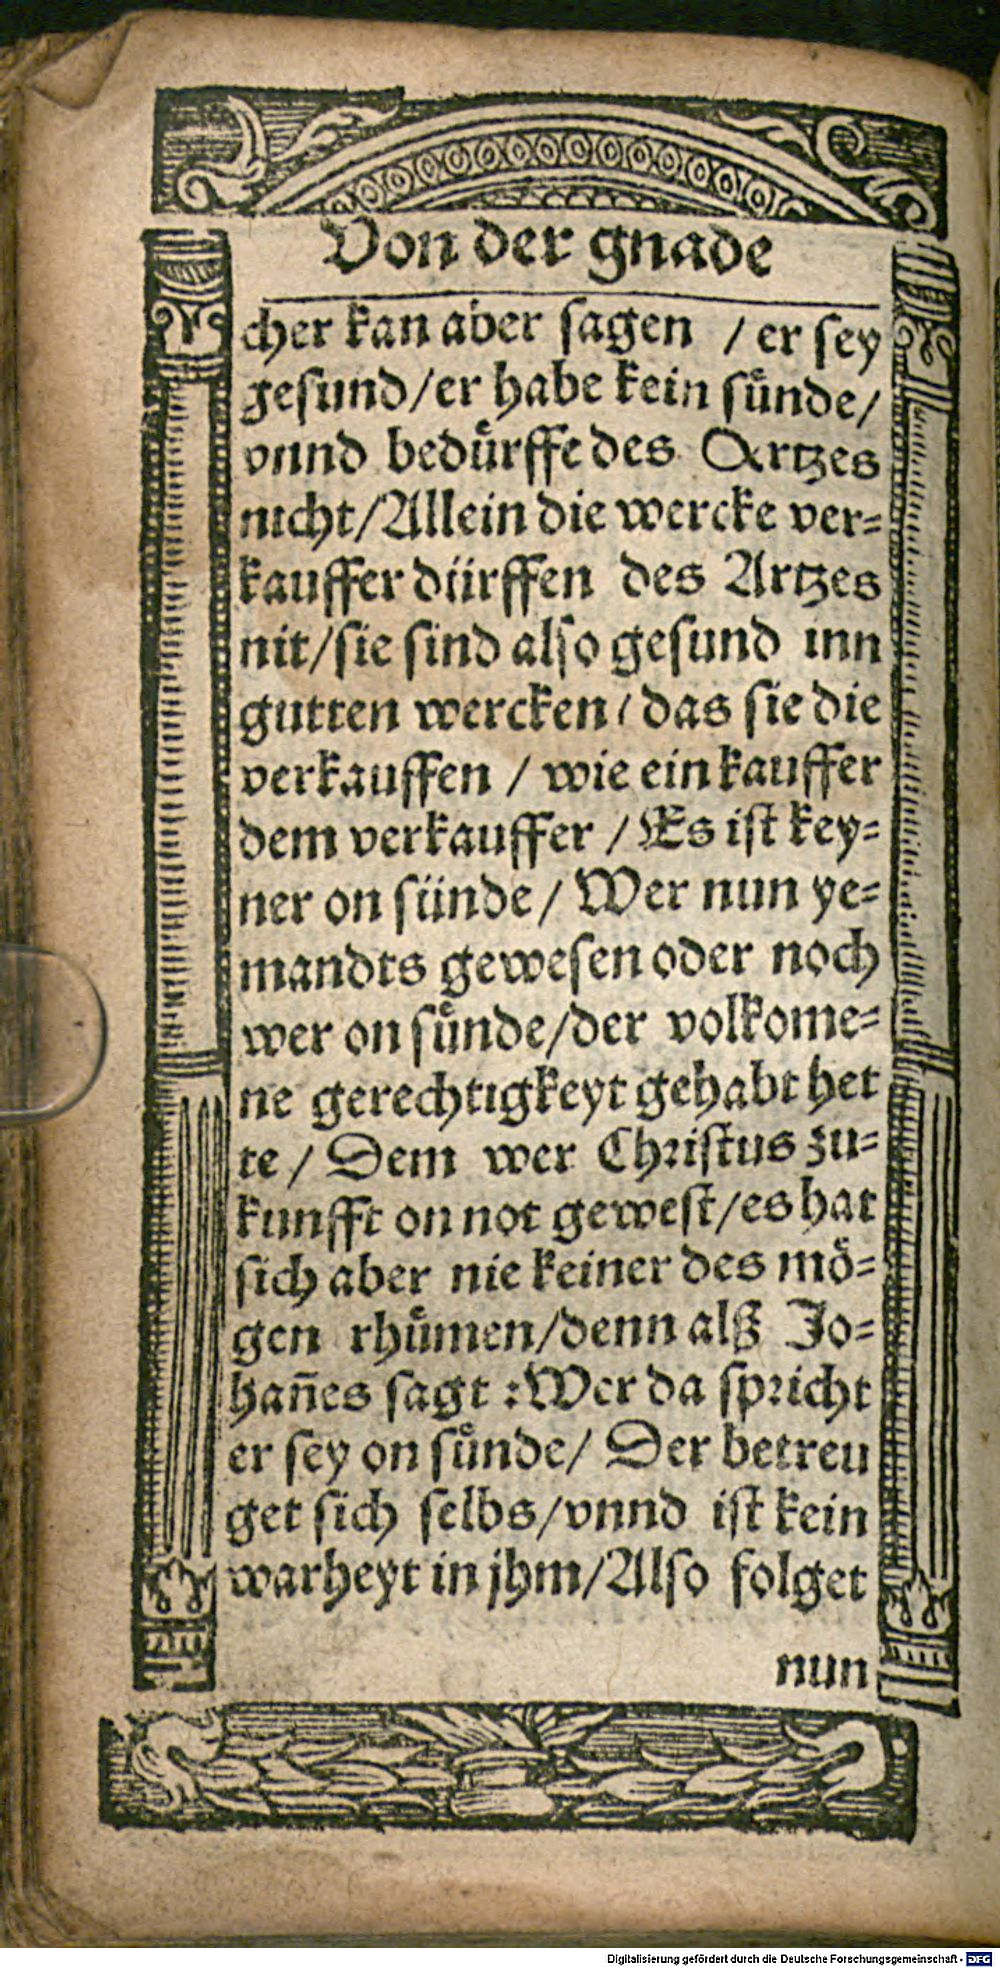 Von der gnade
cher kan aber sagen / er sey
gesund/er habe kein sünde/
vnnd bedürffe des Artzes
nicht/Allein die wercke ver-
kauffer dürffen des Artzes
nit/sie sind also gesund inn
gutten wercken/das sie die
verkauffen / wie ein kauffer
dem verkauffer / Es ist key-
ner on sünde/ Wer nun ye-
mandts gewesen oder noch
wer on sünde/der volkome-
ne gerechtigkeyt gehabt het
te / Dem wer Christus zu-
kunfft on not gewest/es hat
sich aber nie keiner des mö-
gen rhümen/denn alß Jo-
hañes sagt :Wer da spricht
er sey on sünde/ Der betreu
get sich selbs/vnnd ist kein
warheyt in jhm/Also folget
nun
Digitalisierung gefördert durch die Deutsche Forschungsgemeinschaft - DFG